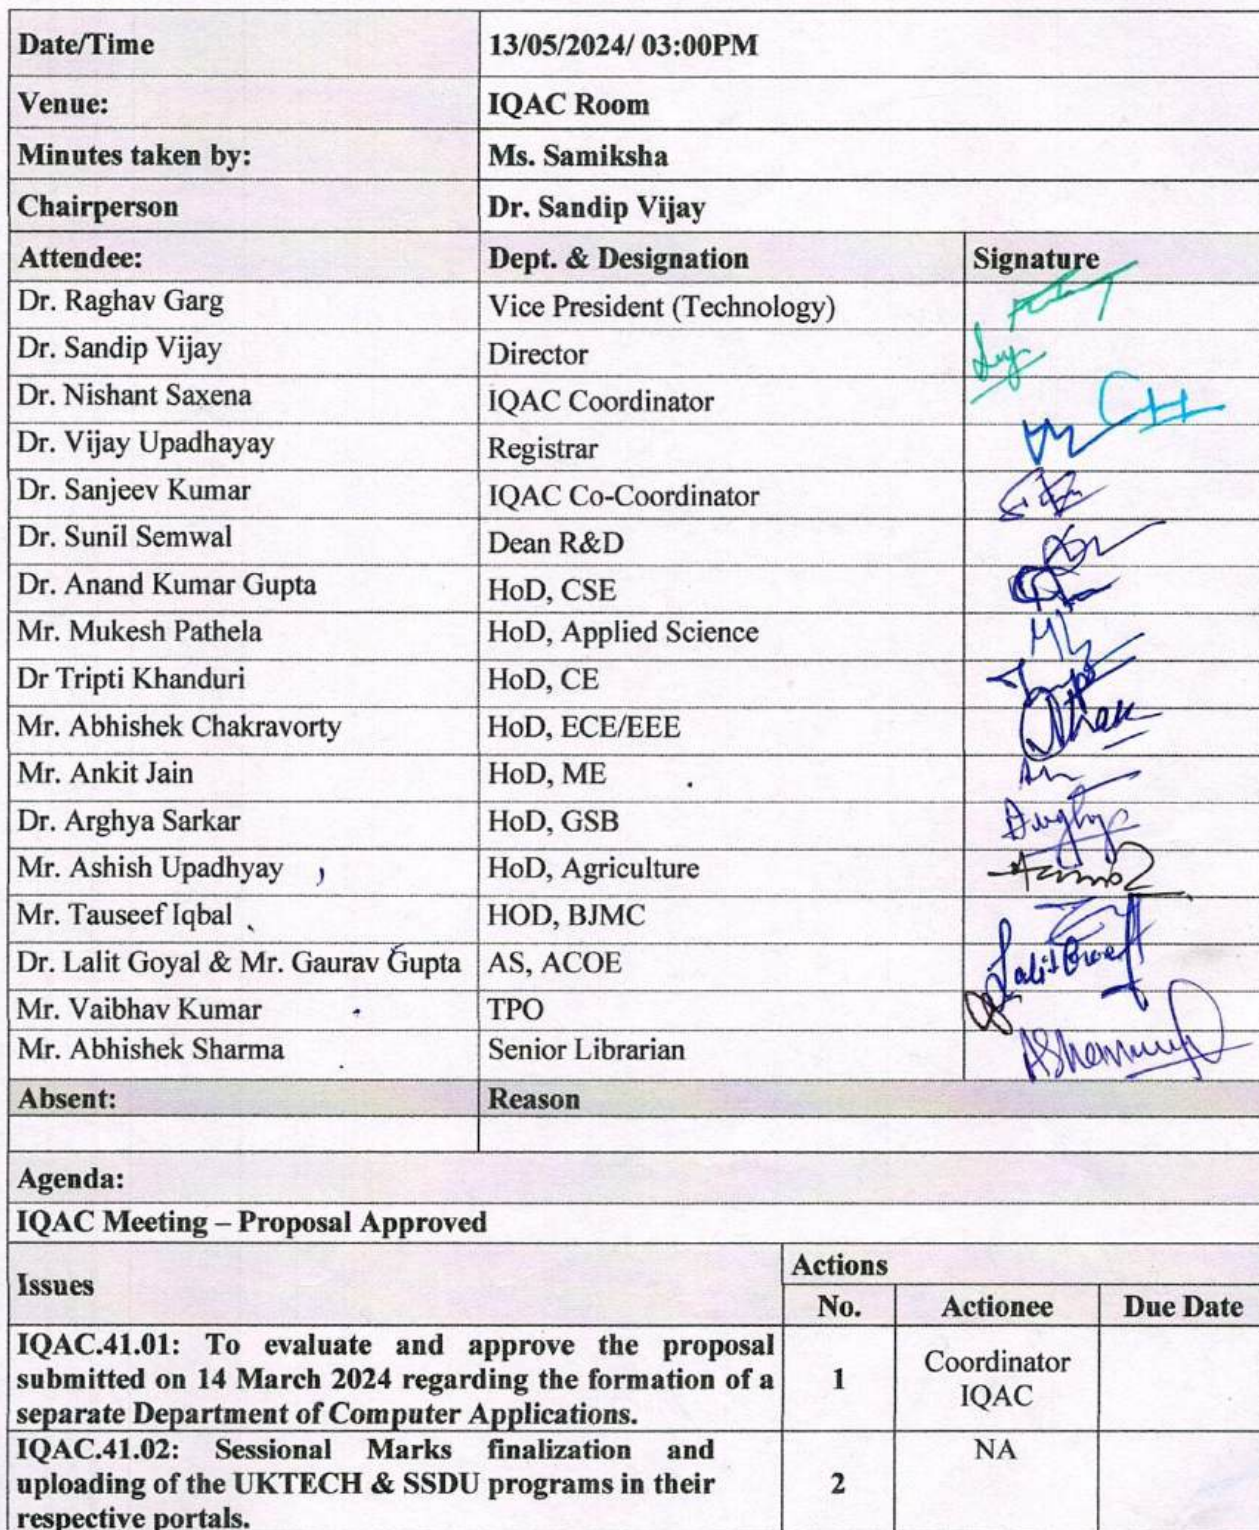 Date/Time 13/05/2024/ 03:00PM
Venue: IQAC Room
Minutes taken by: Ms. Samiksha
Chairperson Dr. Sandip Vijay
Attendee: Dept. & Designation Signature
Dr. Raghav Garg Vice President (Technology)
Dr. Sandip Vijay Director
Dr. Nishant Saxena IQAC Coordinator
Dr. Vijay Upadhayay Registrar
Dr. Sanjeev Kumar IQAC Co-Coordinator
Dr. Sunil Semwal Dean R&D
Dr. Anand Kumar Gupta HoD, CSE
Mr. Mukesh Pathela HoD, Applied Science
Dr Tripti Khanduri HoD, CE
Mr. Abhishek Chakravorty HoD, ECE/EEE
Mr. Ankit Jain HoD, ME
Dr. Arghya Sarkar HoD, GSB
Mr. Ashish Upadhyay HoD, Agriculture
Mr. Tauseef Iqbal HOD, BJMC
Dr. Lalit Goyal & Mr. Gaurav Gupta AS, ACOE
Mr. Vaibhav Kumar TPO
Mr. Abhishek Sharma Senior Librarian
Absent: Reason
Agenda:
IQAC Meeting – Proposal Approved
Issues Actions
No. Actionee Due Date
IQAC.41.01: To evaluate and approve the proposal
submitted on 14 March 2024 regarding the formation of a
separate Department of Computer Applications.
1
Coordinator
IQAC
IQAC.41.02: Sessional Marks finalization and
uploading of the UKTECH & SSDU programs in their
respective portals.
2
NA